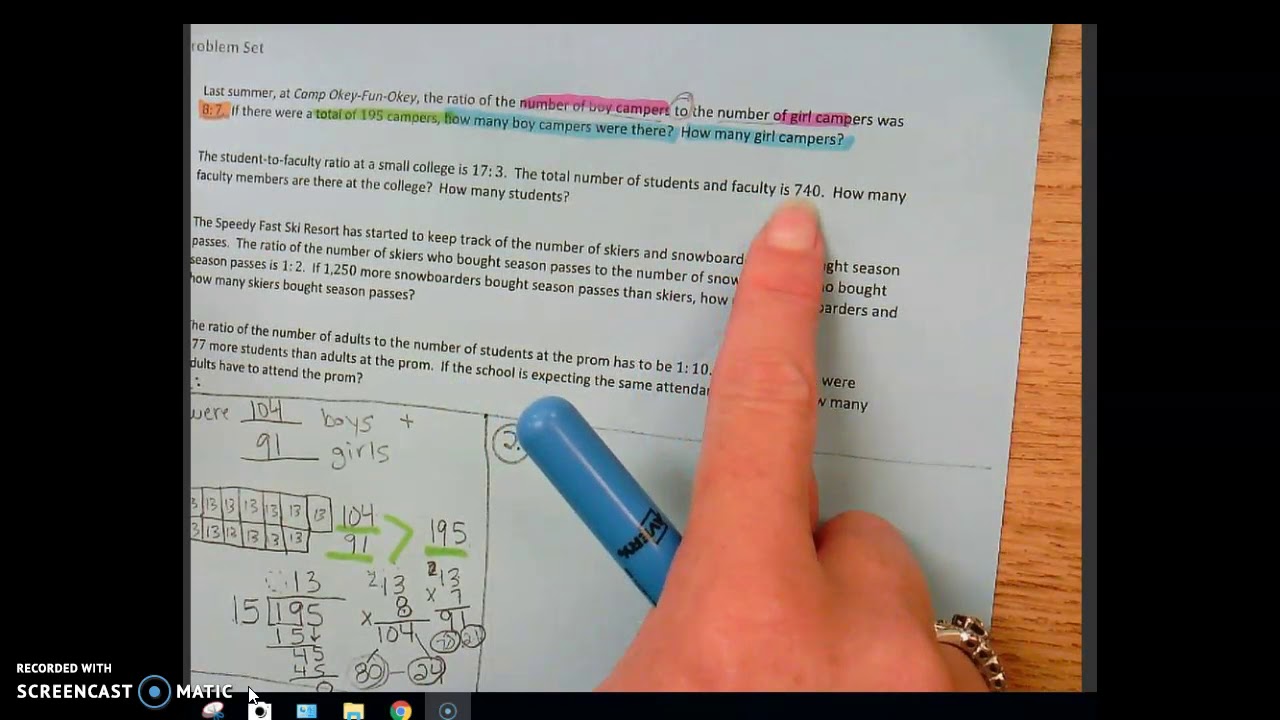 roblem Set
Last summer, at Camp Okey-Fun-Okey, the ratio of the number of boy campers to the number of girl campers was
8:7. If there were a total of 195 campers, how many boy campers were there? How many girl campers?
The student-to-faculty ratio at a small college is 17:3. The total number of students and faculty is 740. How many
faculty members are there at the college? How many students?
The Speedy Fast Ski Resort has started to keep track of the number of skiers and snowboard ght season
passes. The ratio of the number of skiers who bought season passes to the number of snow o bought
season passes is 1:2. If 1,250 more snowboarders bought season passes than skiers, how arders and
how many skiers bought season passes?
he ratio of the number of adults to the number of students at the prom has to be 1:10. were
77 more students than adults at the prom. If the school is expecting the same attendan w many
dults have to attend the prom?
were 104 boys +
91 girls
2.
3 13 13 13 13 13 13 104
3 13 13 13 13 13 91
> 195
13
15 195
15
45
45
0
2 13
x 8
104
80 - 24
2 13
x 7
91
21
AVERY
RECORDED WITH
SCREENCAST MATIC